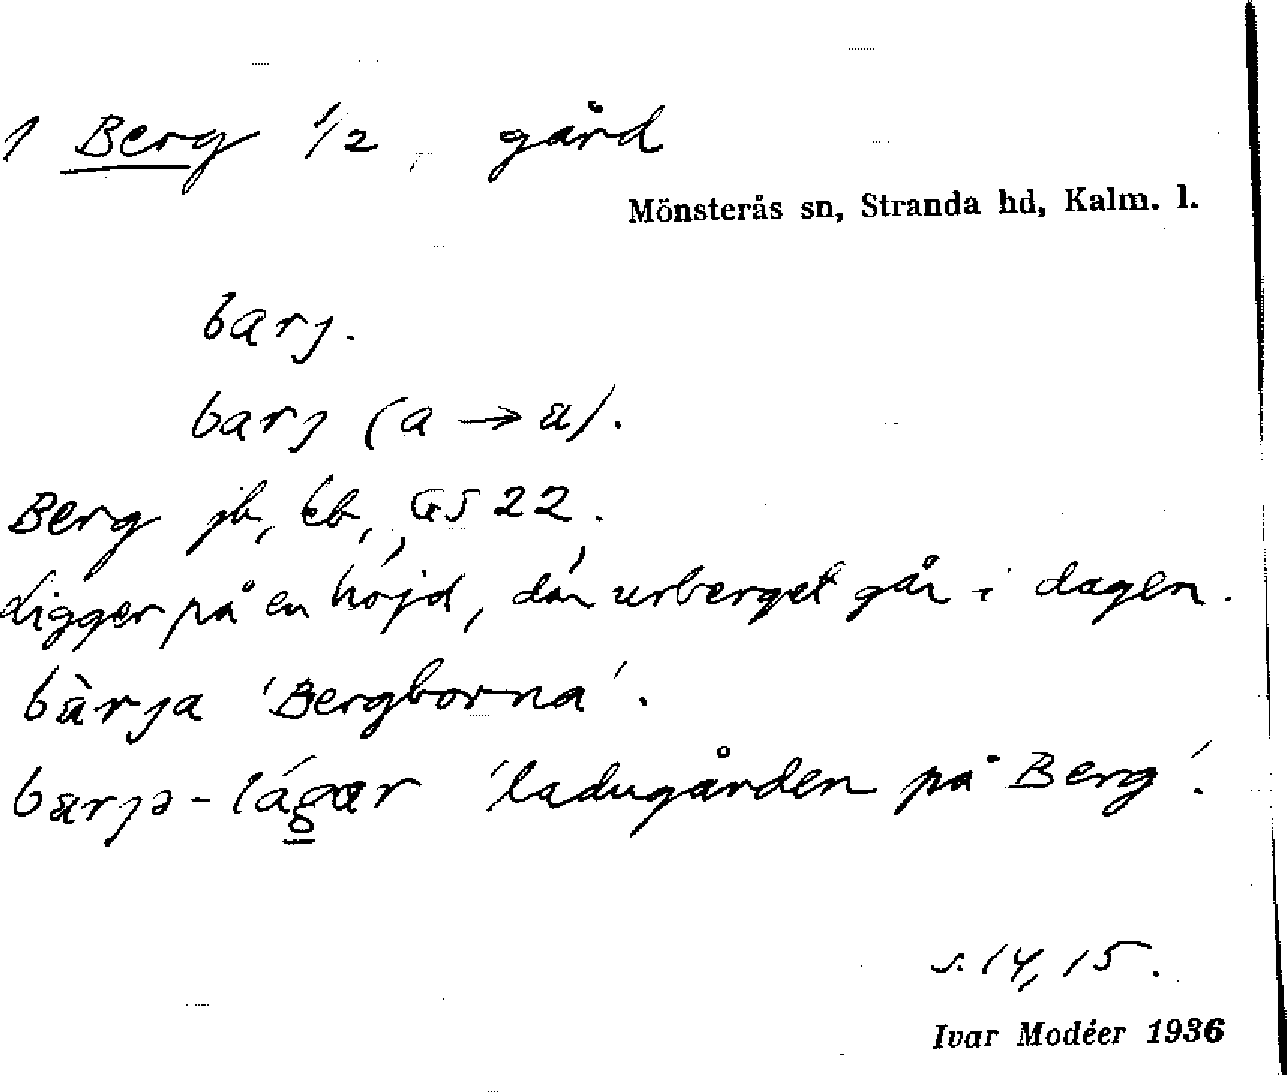 1 Berg 1/2, gård
Mönsterås sn, Stranda hd, Kalm. l.
barj.
barj (a → ä).
Berg jb, kb, GS 22.
Ligger på en höjd, där urberget går i dagen.
bàrja 'Bergborna'.
barjə-lágar 'ladugården på Berg'.
s. 14, 15.
Ivar Modéer 1936